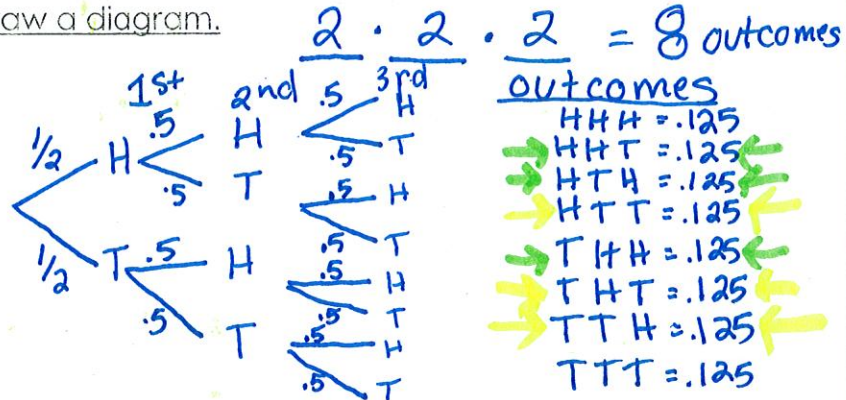 aw a diagram.
2 · 2 · 2 = 8 outcomes
1st 2nd 3rd
outcomes
1/2 H .5 H .5 H
.5 T
.5 T .5 H
.5 T
1/2 T .5 H .5 H
.5 T
.5 T .5 H
.5 T
HHH = .125
HHT = .125
HTH = .125
HTT = .125
THH = .125
THT = .125
TTH = .125
TTT = .125